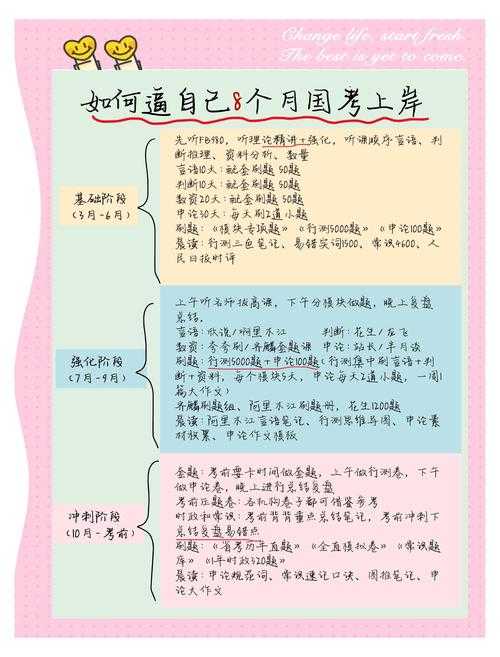 Change life, scart fresh
The best is yet to come
如何逼自己8个月国考上岸
基础阶段
(3月-6月)
先听FB980，听理论精讲+强化，听课顺序言语、判
断推理、资料分析、数量
言语10天：配套刷题 50题
判断10天：配套刷题 50题
数资20天：配套刷题 50题
申论30天：每天刷2道小题
刷题：《模块专项题》《行测5000题》《申论100题》
晨读：行测三色笔记、易错实词1500、常识4600、人
民日报时评
强化阶段
(7月-9月)
上午听名师拔高课，下午分模块做题，晚上复盘
总结。
言语：欣说/阿里木江 判断：花生/龙飞
数资：夸夸刷/齐麟套题课 申论：站长/半月谈
刷题：行测5000题+申论100题(行测集中刷言语+判
断+资料，每个模块5天，申论每天2道小题，一周1
篇大作文)
齐麟刷题组、阿里木江刷题册、花生1200题
晨读：阿里木江言语笔记、行测思维导图、申论素
材放累、申论作文模板
冲刺阶段
(10月-考前)
套题：考前要卡时间做套题，上午做行测卷，下午
做申论卷，晚上进行总结复盘
考前压题卷：各机构卷子都可借鉴参考
时政和常识：考前背背重点总结笔记，考前冲刺下
总结复盘易错点
刷题：《省考历年真题》《全真模拟卷》《常识题
库》《1年时政320题》
晨读：申论规范词、常识速记口诀、图推笔记、申
论大作文